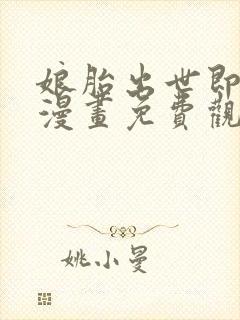 娘胎出世即
漫畫免費觀
姚小曼